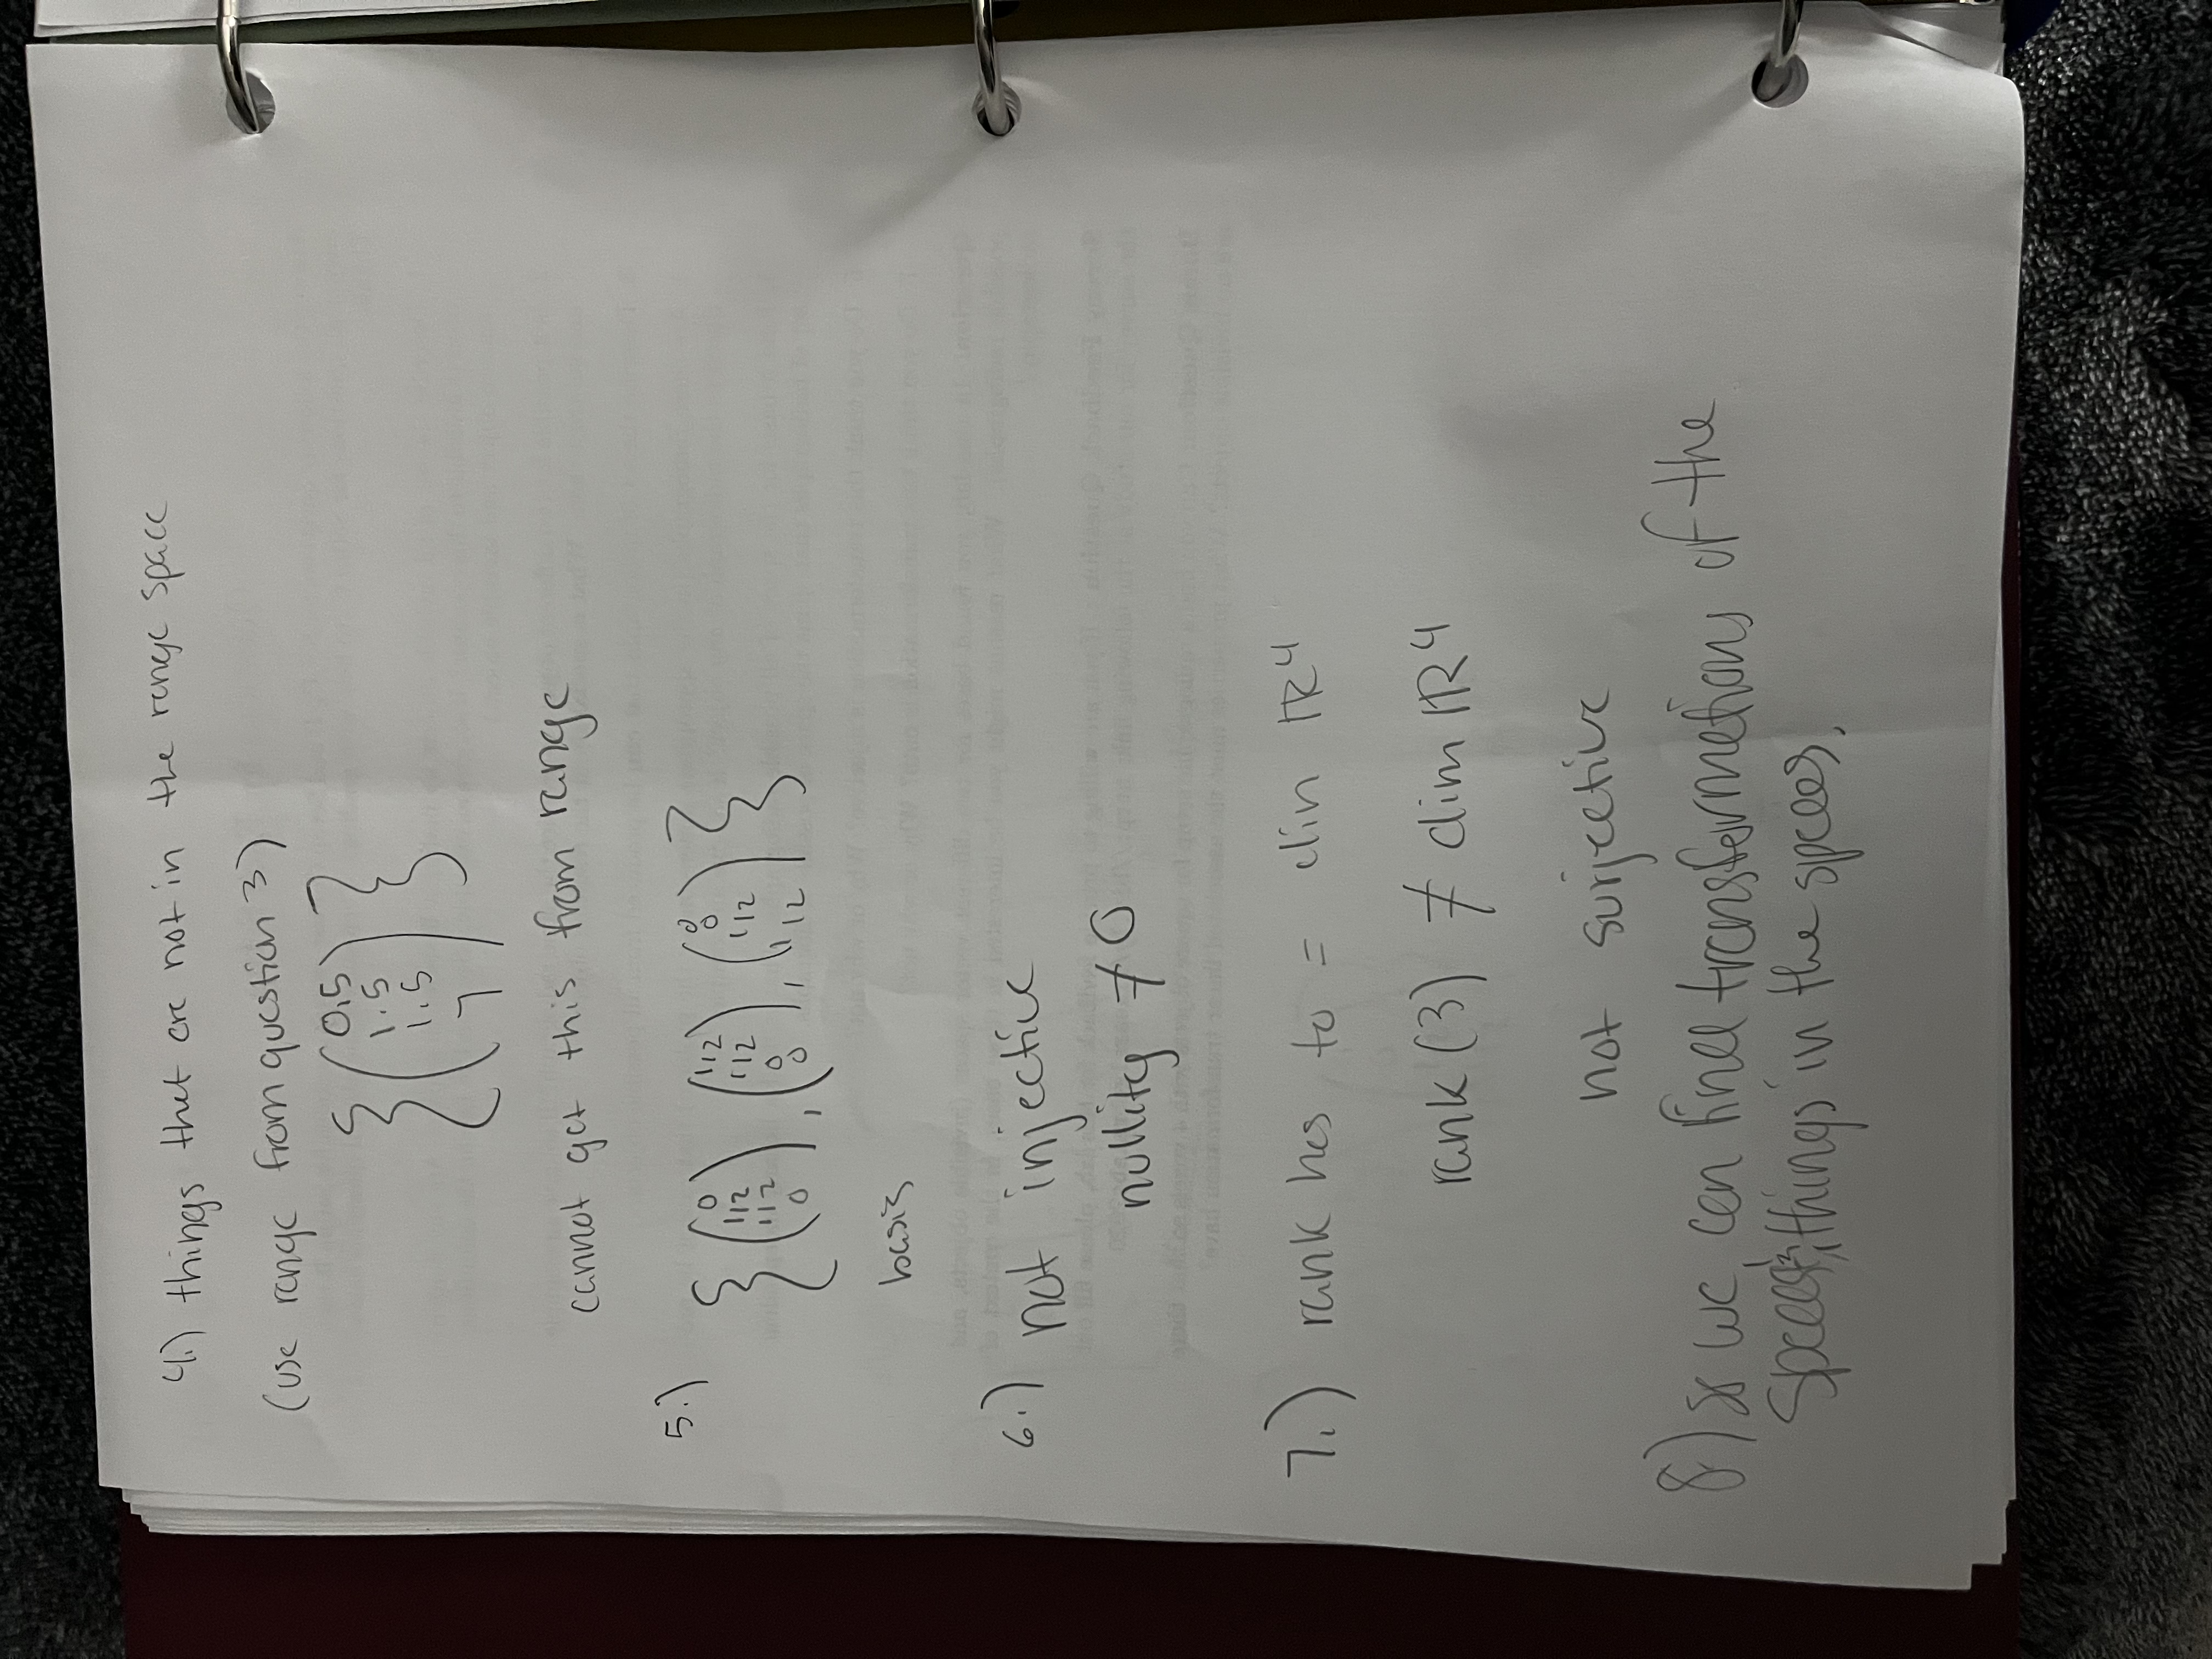 4.) things that are not in the range space
(use range from question 3)
{ ( 0.5
1.5
1.5
7 ) }
cannot get this from range
5.) { ( 0 1/2 1/2 0 ), ( 1/2 1/2 0 0 ), ( 0 0 1/2 1/2 ) }
basis
6.) not injective
nullity ≠ 0
7.) rank has to = dim ℝ⁴
rank (3) ≠ dim ℝ⁴
not surjective
8.) so we can find transformations of the
things in the spaces.